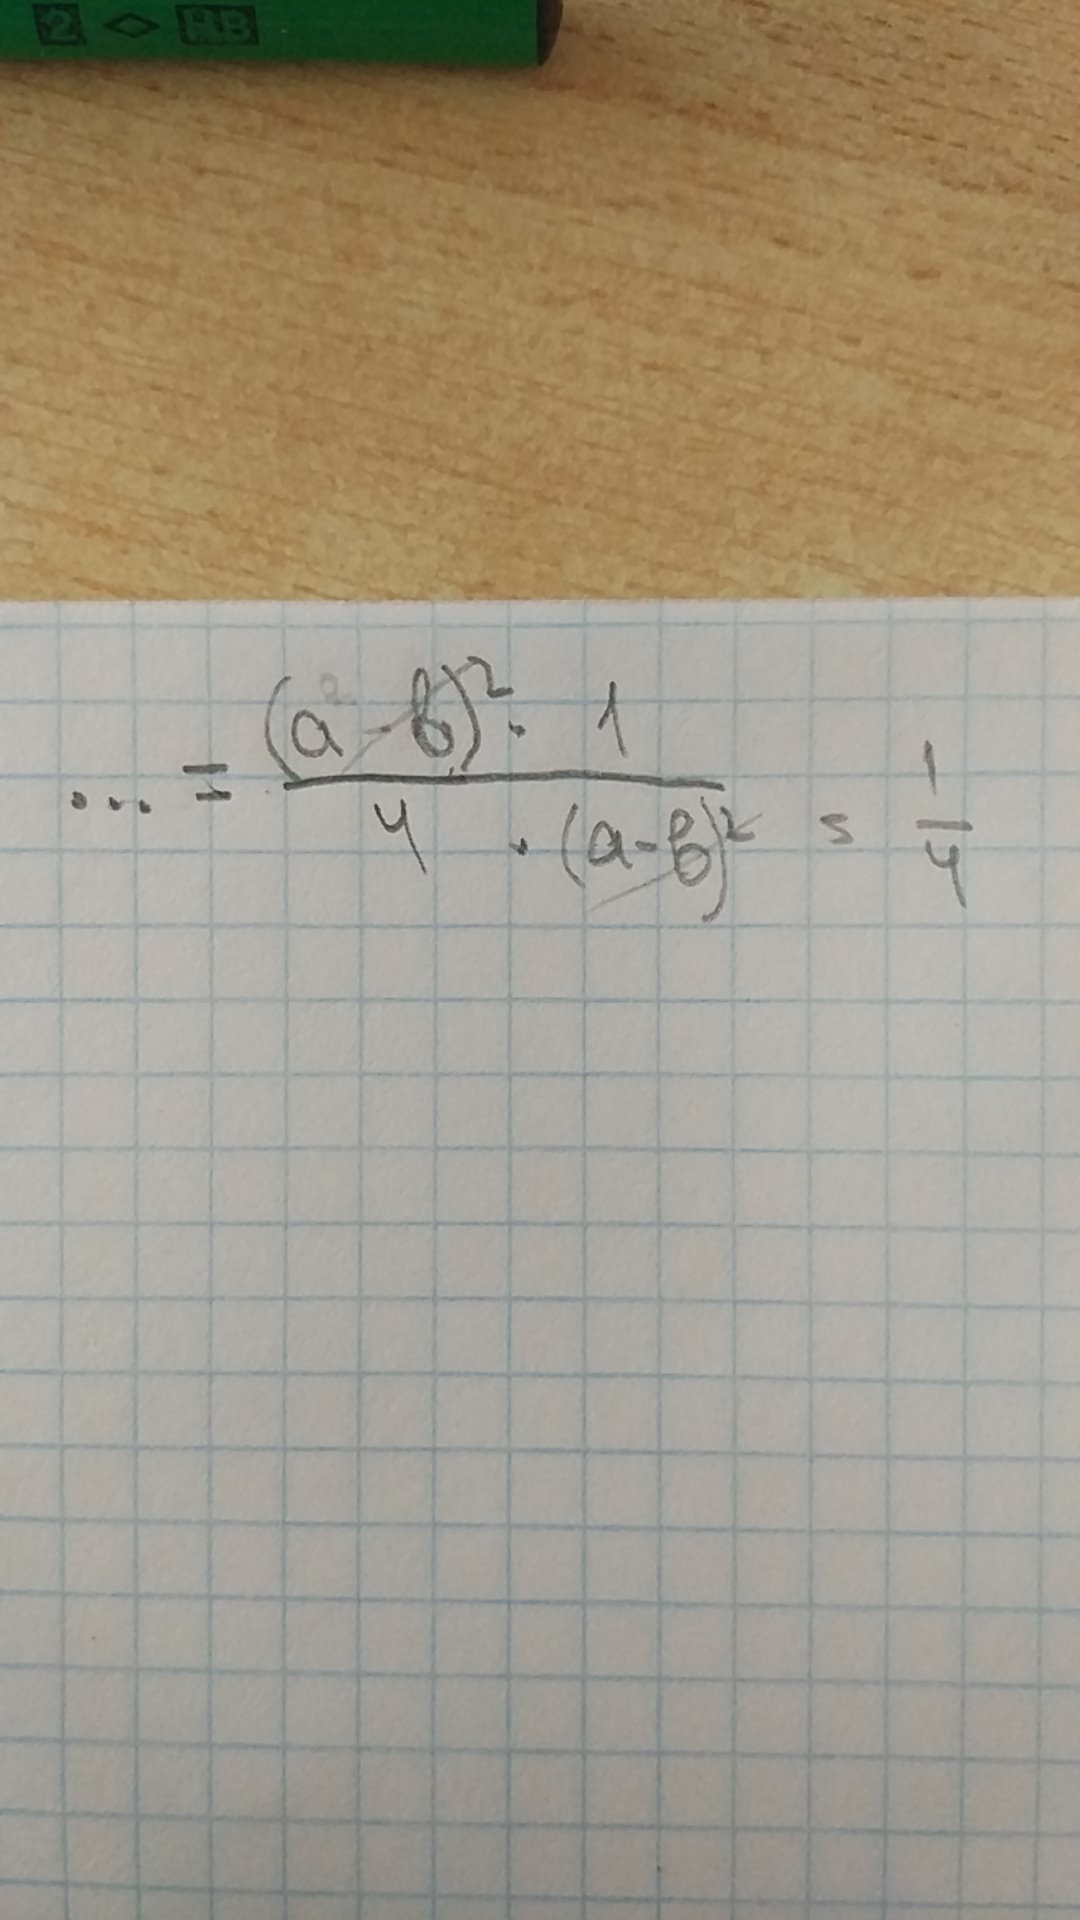 2 ◇ HB
... = \frac{(a - b)^2 \cdot 1}{4 \cdot (a - b)^2} = \frac{1}{4}